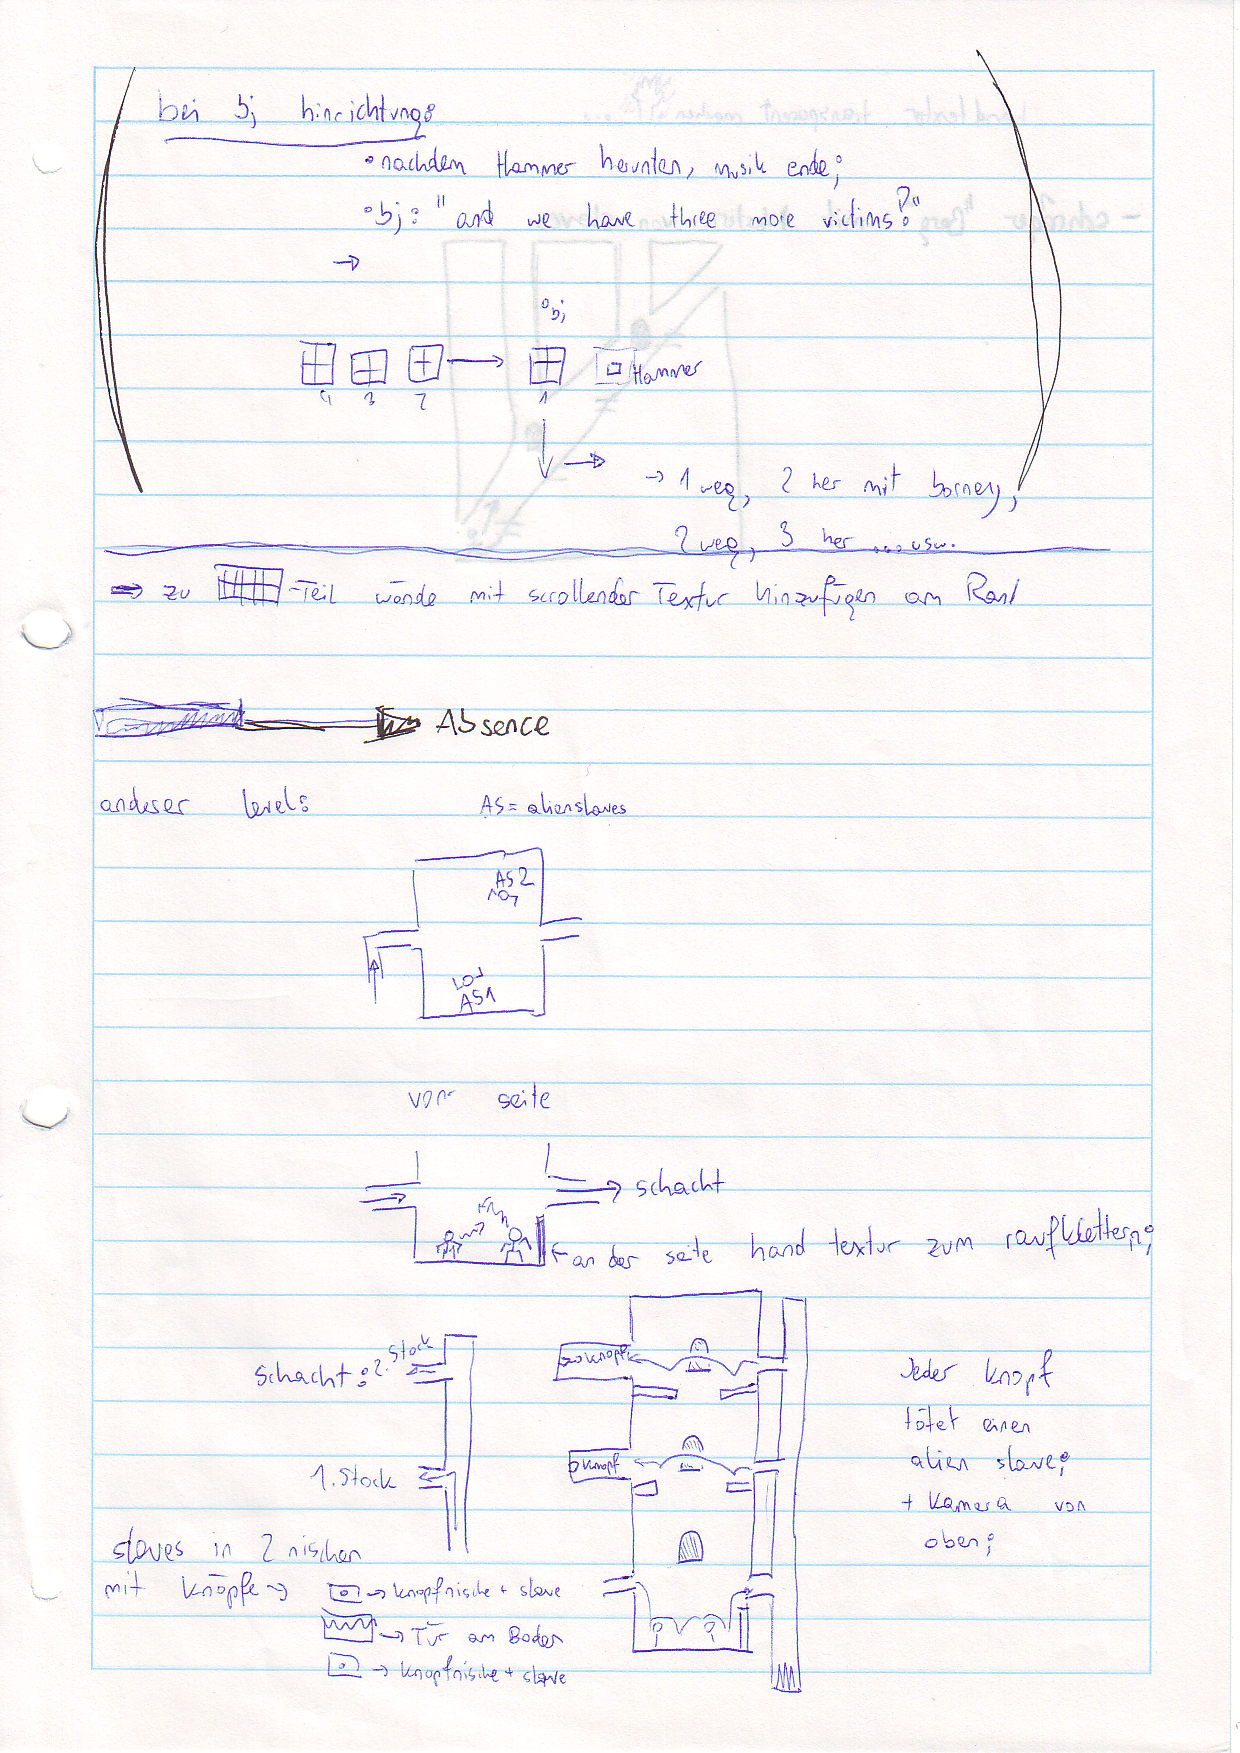 bei bj hinrichtung:
• nachdem Hammer herunten, musik ende;
• bj: "and we have three more victims?"
→
bj
Hammer
4 3 2 1
→ 1 weg, 2 her mit barney,
2 weg, 3 her ... usw.
⇒ zu -Teil wände mit scrollender Textur hinzufügen am Rand
Absence
anderer level:
AS = alienslaves
AS2
AS1
von seite
→ schacht
← an der seite hand textur zum raufklettern;
schacht: 2. Stock
1. Stock
Knöpfe
Knopf
Jeder Knopf
tötet einen
alien slave;
+ Kamera von
oben;
slaves in 2 nischen
mit Knöpfe →
→ Knopfnische + slave
→ Tür am Boden
→ Knopfnische + slave